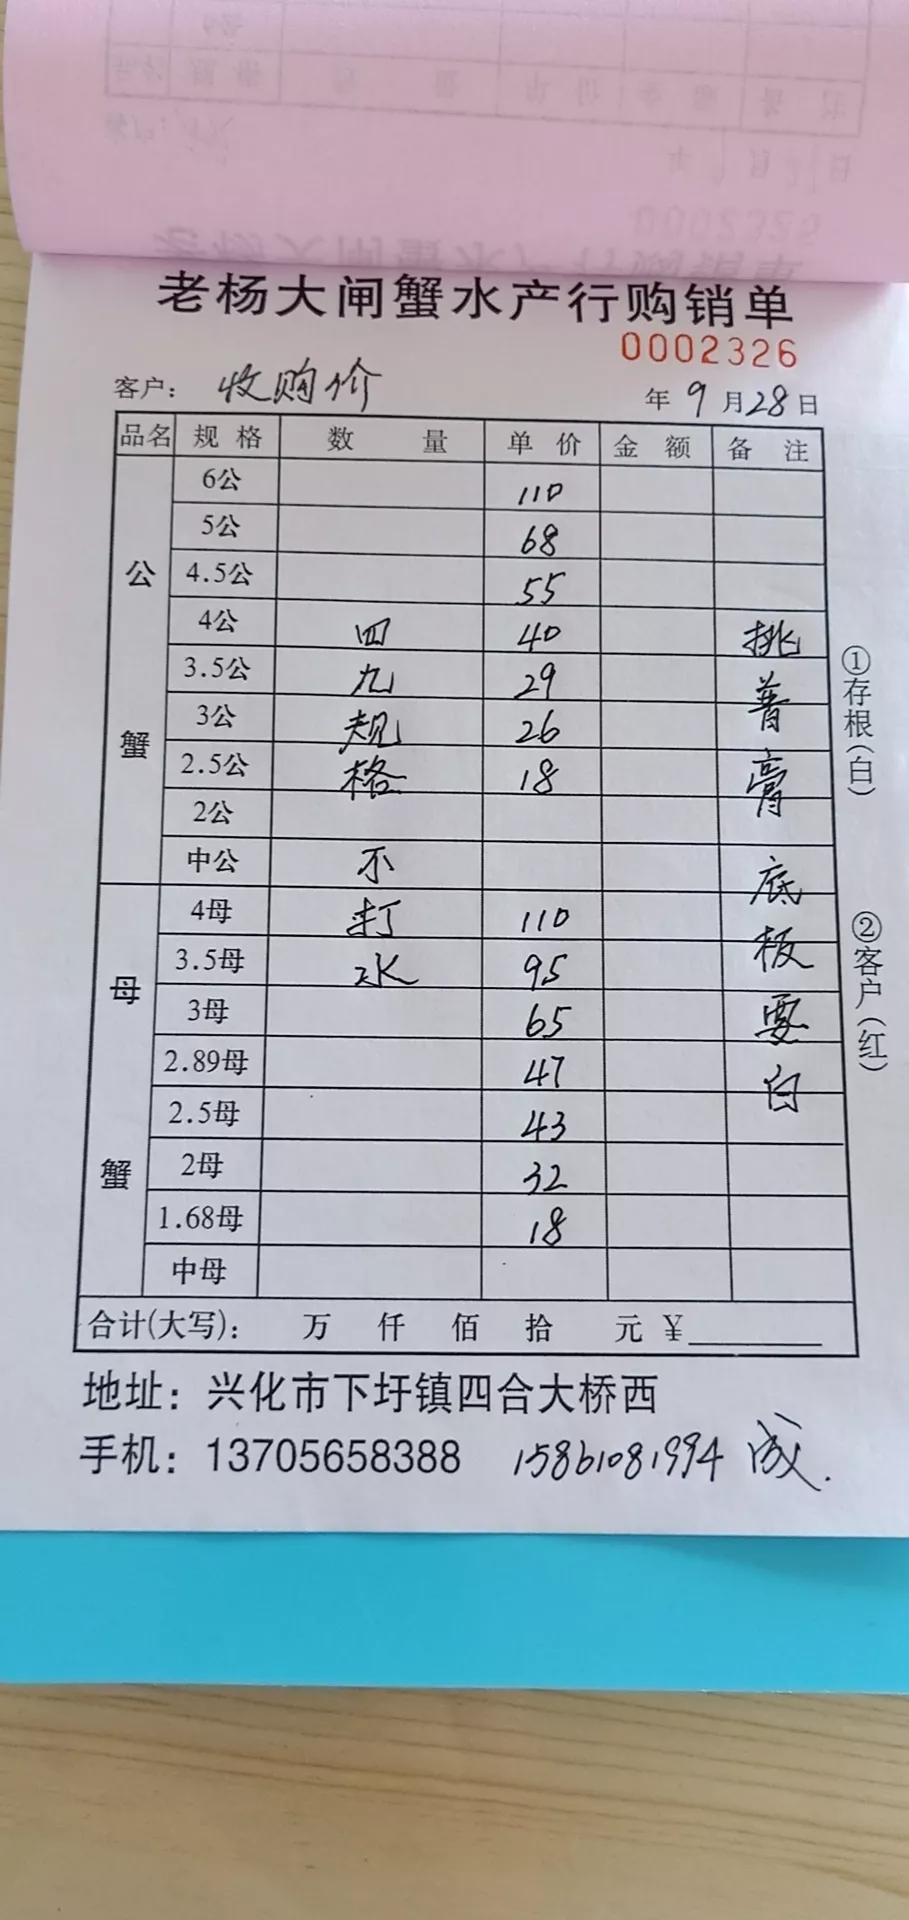 老杨大闸蟹水产行购销单
0002326
客户： 收购价 年 9 月 28 日
品名 规格 数量 单价 金额 备注
公蟹
6公 110
5公 68
4.5公 55
4公 四 40 挑
3.5公 九 29 普
3公 规 26 膏
2.5公 格 18
2公
中公 不 底
母蟹
4母 打 110 板
3.5母 水 95 要
3母 65 白
2.89母 47
2.5母 43
2母 32
1.68母 18
中母
合计(大写)： 万 仟 佰 拾 元 ¥
①存根(白)
②客户(红)
地址：兴化市下圩镇四合大桥西
手机：13705658388 15861081994 成